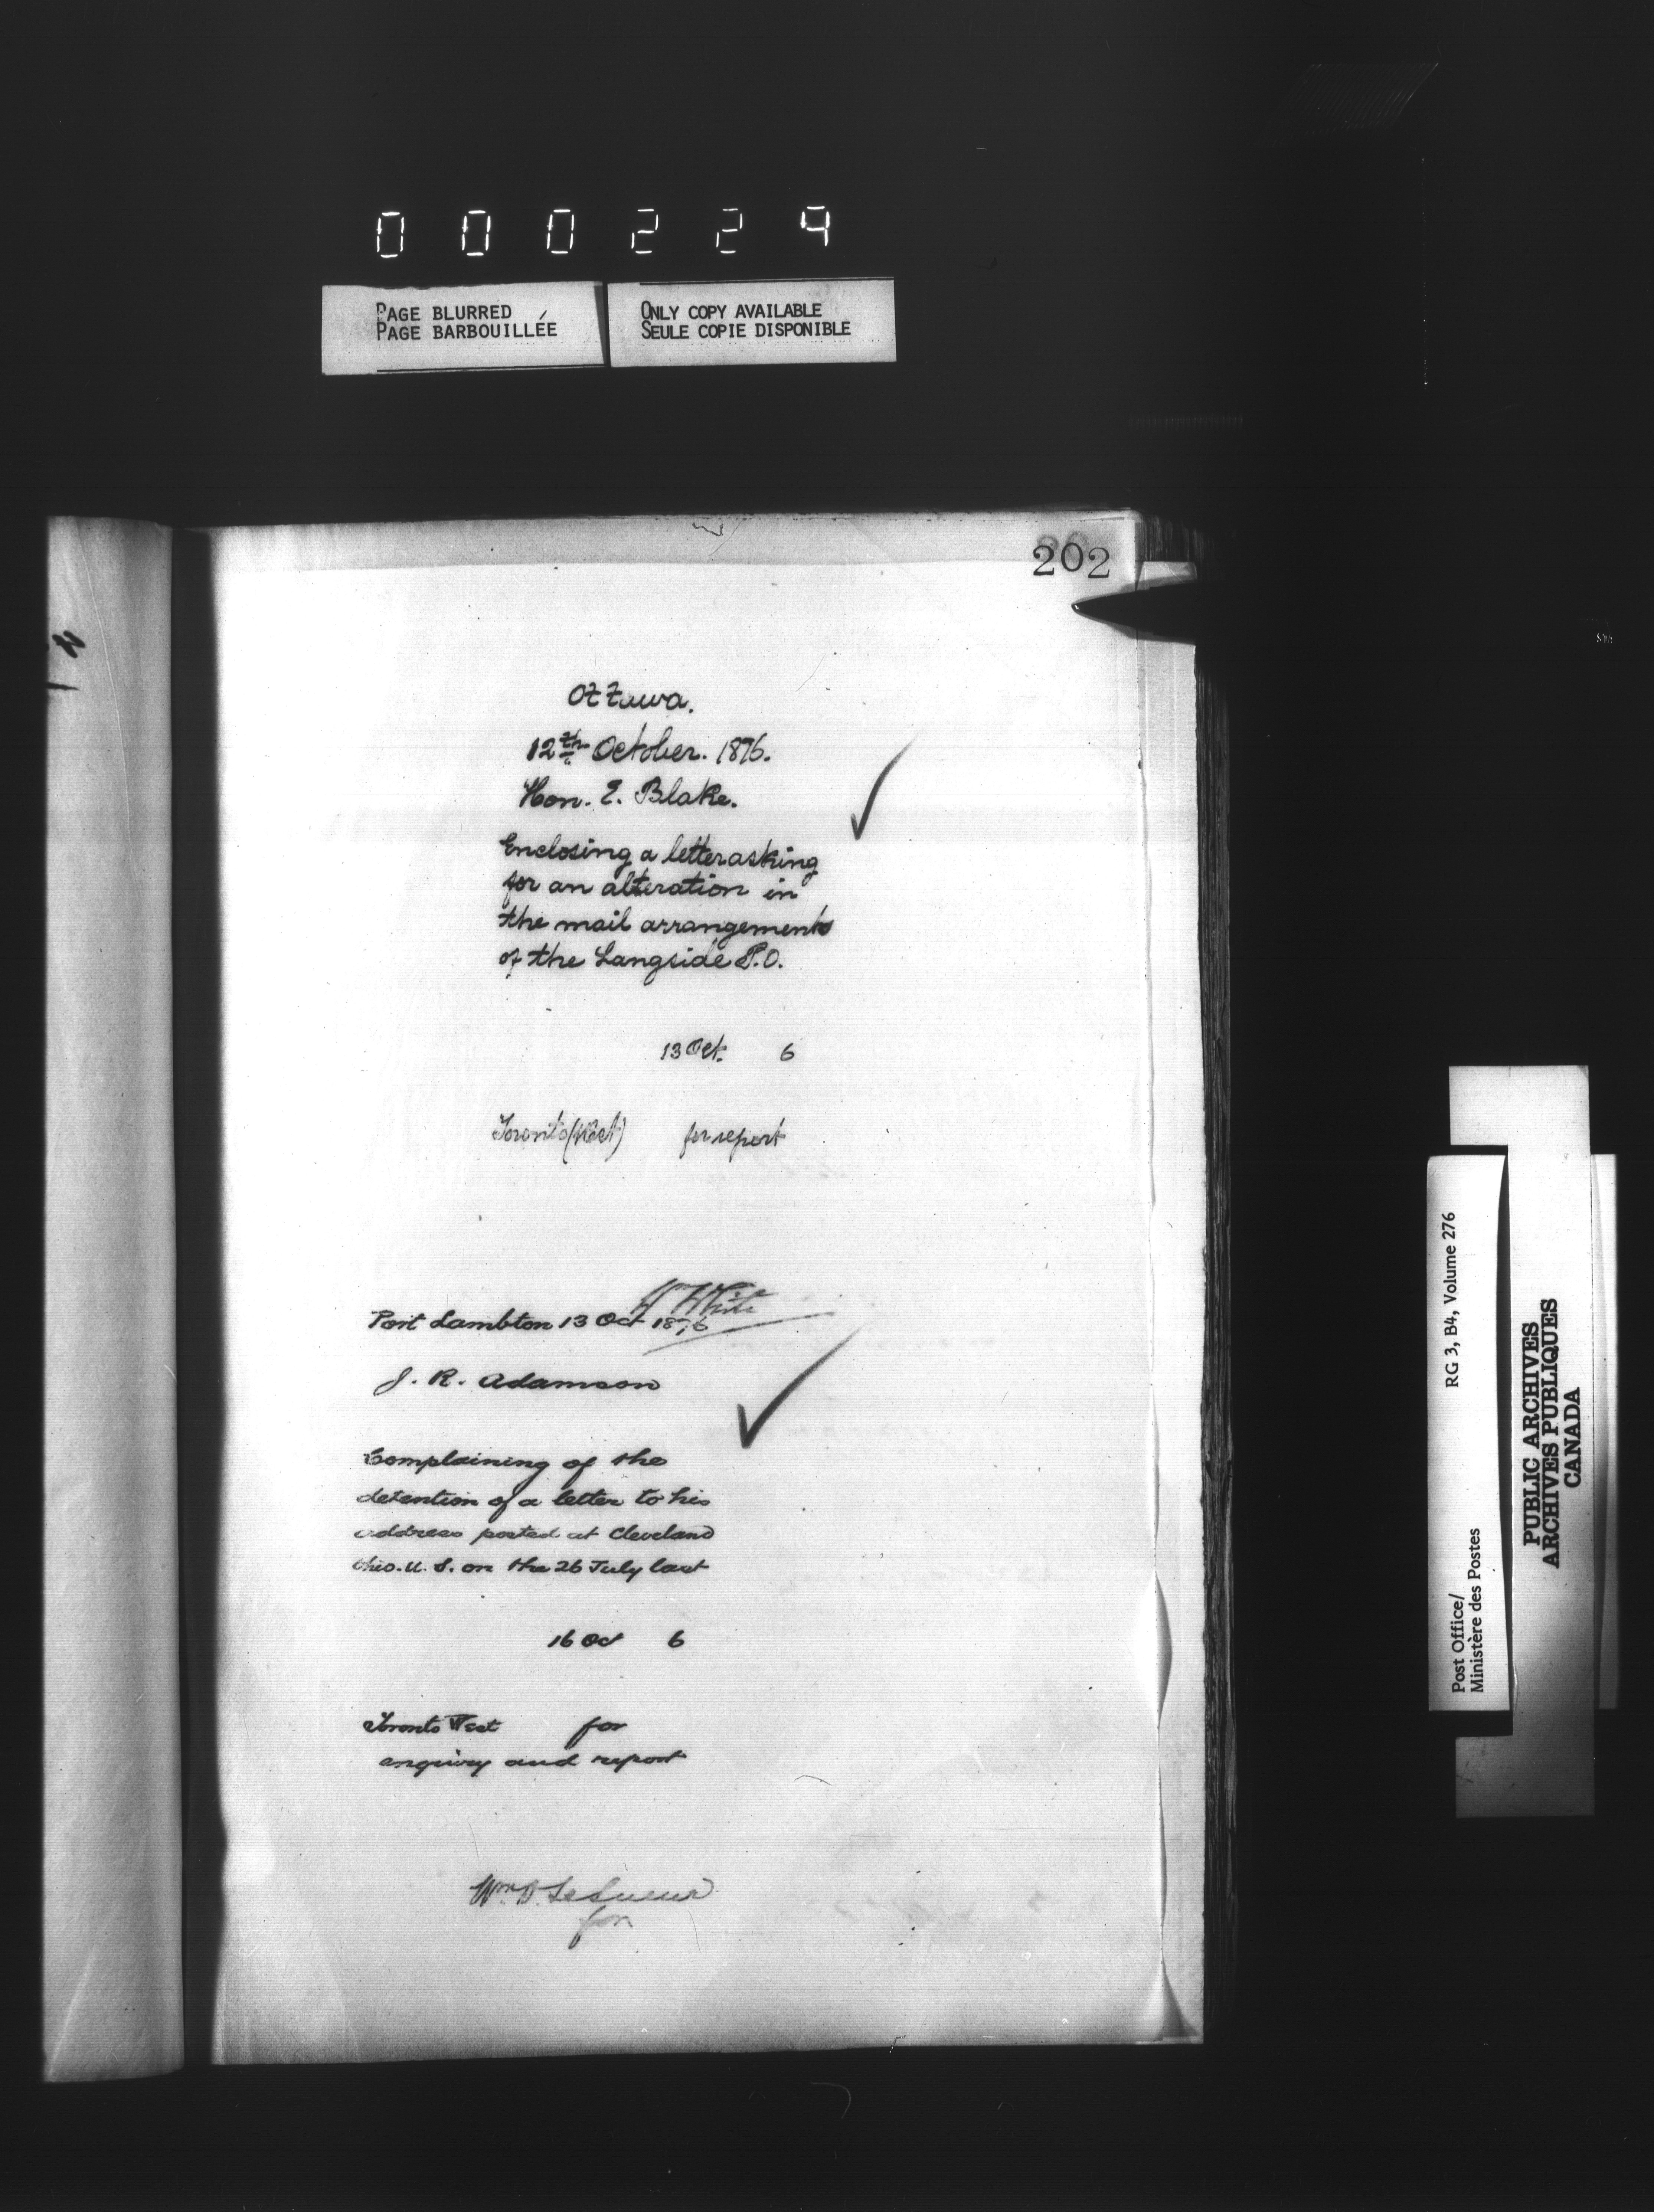 000224
PAGE BLURRED
PAGE BARBOUILLÉE
ONLY COPY AVAILABLE
SEULE COPIE DISPONIBLE
202
Ottawa.
12th October. 1876.
Hon. E. Blake.
Enclosing a letter asking
for an alteration in
the mail arrangements
of the Langside P.O.
13 Oct. 6
Toronto (West) for report
H White
Port Lambton 13 Oct 1876
J. R. Adamson
Complaining of the
detention of a letter to his
address posted at Cleveland
Ohio. U. S. on the 26 July last
16 Oct 6
Toronto West for
enquiry and report
Wm D. LeSueur
for
RG 3, B4, Volume 276
Post Office/
Ministère des Postes
PUBLIC ARCHIVES
ARCHIVES PUBLIQUES
CANADA